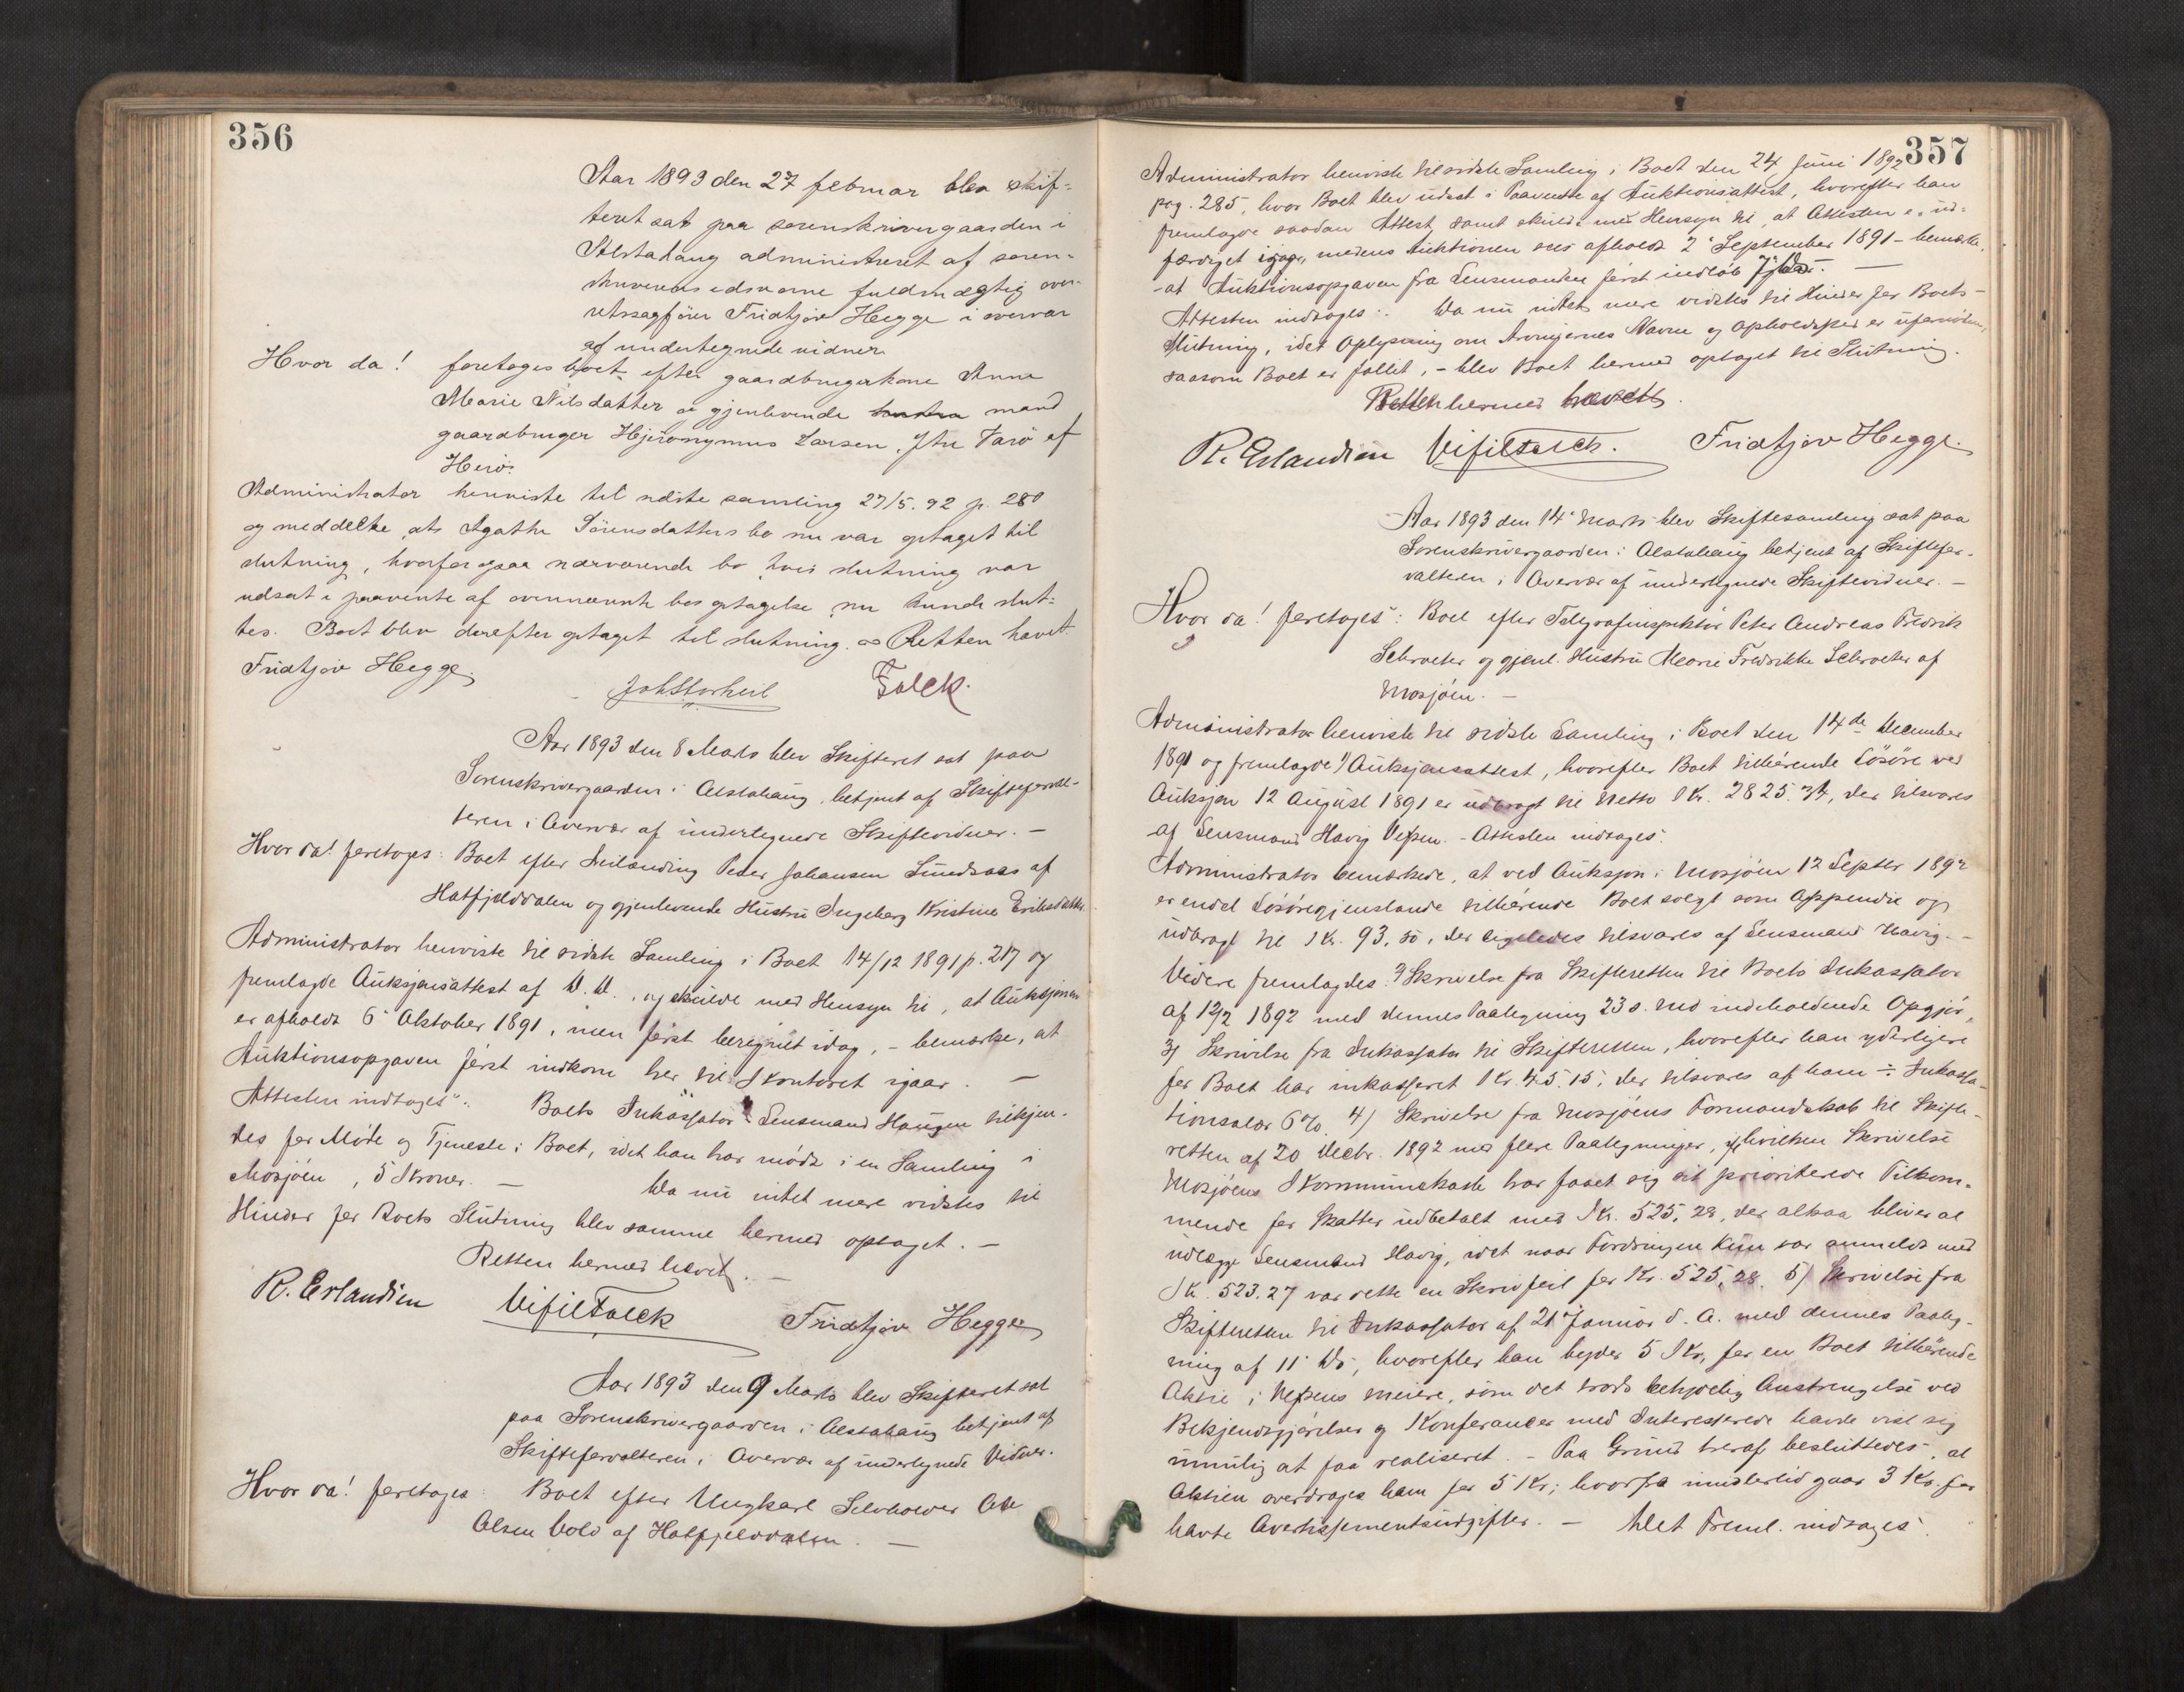 356
Aar 1893 den 27 februar blev skif-
teret sat paa sorenskrivergaarden i
Alstahaug administreret af soren-
skriverens edsvorne fuldmægtig over-
retssagfører Fridtjov Hegge i overvær
af undertegnede vidner
Hvor da! foretoges boet efter gaardbrugerkone Anne
Marie Nilsdatter og gjenlevende mand
gaardbruger Hjeronymus Larsen Ytre Tarø af
Herø.
Administrator henviste til sidste samling 27/5. 92 p. 280
og meddelte, at Agathe Sörensdatters bo nu var optaget til
slutning, hvorfor ogsaa nærværende bo hvis slutning var
udsat i paavente af ovennævnte bos optagelse nu kunde slut-
tes. Boet blev derefter optaget til slutning. Retten hævet
Fridtjov Hegge. Joh Storheil Falck.
Aar 1893 den 8 Marts blev Skifteret sat paa
Sorenskrivergaarden i Alstahaug, betjent af Skifteforval-
teren i Overvær af undertegnede Skiftevidner. —
Hvor da! foretoges: Boet efter Inilænding Peder Johansen Lundsaas af
Hatfjelddalen og gjenlevende Hustru Ingeborg Kristine Eriksdatter.
Administrator henviste til sidste Samling i Boet 14/12 1891 p. 217 og
fremlagde Auksjonsattest af D. D., og skulde med Hensyn til, at Auksjonen
er afholdt 6 Oktober 1891, men først beregnet idag, - bemærke, at
Auktionsopgaven først indkom her til Kontoret igaar. —
Attesten indtoges:. Boets Inkassator Lensmand Haugen tilkjen-
des for Møde og Tjeneste i Boet, idet han har mødt i en Samling i
Mosjøen, 5 Kroner. — Da nu intet mere vidstes til
Hinder for Boets Slutning blev samme hermed optaget. —
Retten hermed hævet. —
R. Erlandsen Vifil Falck Fridtjov Hegge
Aar 1893 den 9 Marts blev Skifteret sat
paa Sorenskrivergaarden i Alstahaug betjent af
Skifteforvalteren i Overvær af undertegnede Vidner.
Hvor da! foretoges: Boet efter Ungkarl Selvholder Ole
Olsen Vold af Hatfjelddalen. —
357
Administrator henviste til sidste Samling i Boet den 24 Juni 1892
pag. 285, hvor Boet blev udsat i Paavente af Auktionsattest, hvorefter han
fremlagde saadan Attest, samt skulde med Hensyn til, at Attesten er ud-
færdiget igaar, medens Auktionen er afholdt 2 September 1891 - bemærke,
- at Auktionsopgaven fra Lensmanden først indløb 7 ds. —
Attesten indtoges:. Da nu intet mere vidstes til Hinder for Boets
Slutning, idet Oplysning om Arvingernes Navne og Opholdssted er ufornøden,
saasom Boet er fallit, - blev Boet hermed optaget til Slutning.
Retten hermed hævet.
R. Erlandsen Vifil Falck. Fridtjov Hegge.
Aar 1893 den 14 Marts blev Skiftesamling sat paa
Sorenskrivergaarden i Alstahaug betjent af Skiftefor-
valteren i Overvær af undertegnede Skiftevidner. —
Hvor da! foretoges: Boet efter Telegrafinspektør Peter Andreas Fredrik
Schroeter og gjenl. Hustru Marie Fredrikke Schroeter af
Mosjøen. —
Administrator henviste til sidste Samling i Boet den 14de December
1891 og fremlagde 1) Auksjonsattest, hvorefter Boet tilhørende Løsøre ved
Auksjon 12 August 1891 er udbragt til Netto Kr. 2825.34, der tilsvares
af Lensmand Havig Vefsen. - Attesten indtoges.
Administrator bemærkede, at ved Auksjon i Mosjøen 12 Septbr 1892
er endel Løsøregjenstande tilhørende Boet solgt som Appendix og
udbragt til Kr. 93,50, der ligeledes tilsvares af Lensmand Havig. —
Videre fremlagdes: 2) Skrivelse fra Skifteretten til Boets Inkassator
af 12/2 1892 med dennes Paategning 23 s. Md indeholdende Opgjør,
3) Skrivelse fra Inkassator til Skifteretten, hvorefter han yderligere
for Boet har inkasseret Kr. 45.15, der tilsvares af ham ÷ Inkassa-
tionsalær 6%. 4) Skrivelse fra Mosjøens Formandskab til Skifte-
retten af 20 Decbr. 1892 med flere Paategninger, if. hvilken Skrivelse
Mosjøens Kommunekasse har faaet sig sit prioriterede Tilkom-
mende for Skatter udbetalt med Kr. 525,28, der altsaa bliver at
udlægge Lensmand Havig, idet naar Fordringen kun var anmeldt med
Kr. 523.27 var dette en Skrivfeil for Kr. 525,28. 5) Skrivelse fra
Skifteretten til Inkassator af 21 Januar d. A. med dennes Paateg-
ning af 11 ds, hvorefter han byder 5 Kr, for en Boet tilhørende
Aktie i Vefsens Meieri, som det trods betydelig Anstrengelse ved
Bekjendtgjørelser og Konferancer med Interesserede havde vist sig
umulig at faa realiseret. - Paa Grund heraf besluttedes, at
Aktien overdrages ham for 5 Kr; hvorfra imidlertid gaar 3 Kr for
havte Avertissementsudgifter. — Det Freml. indtoges.